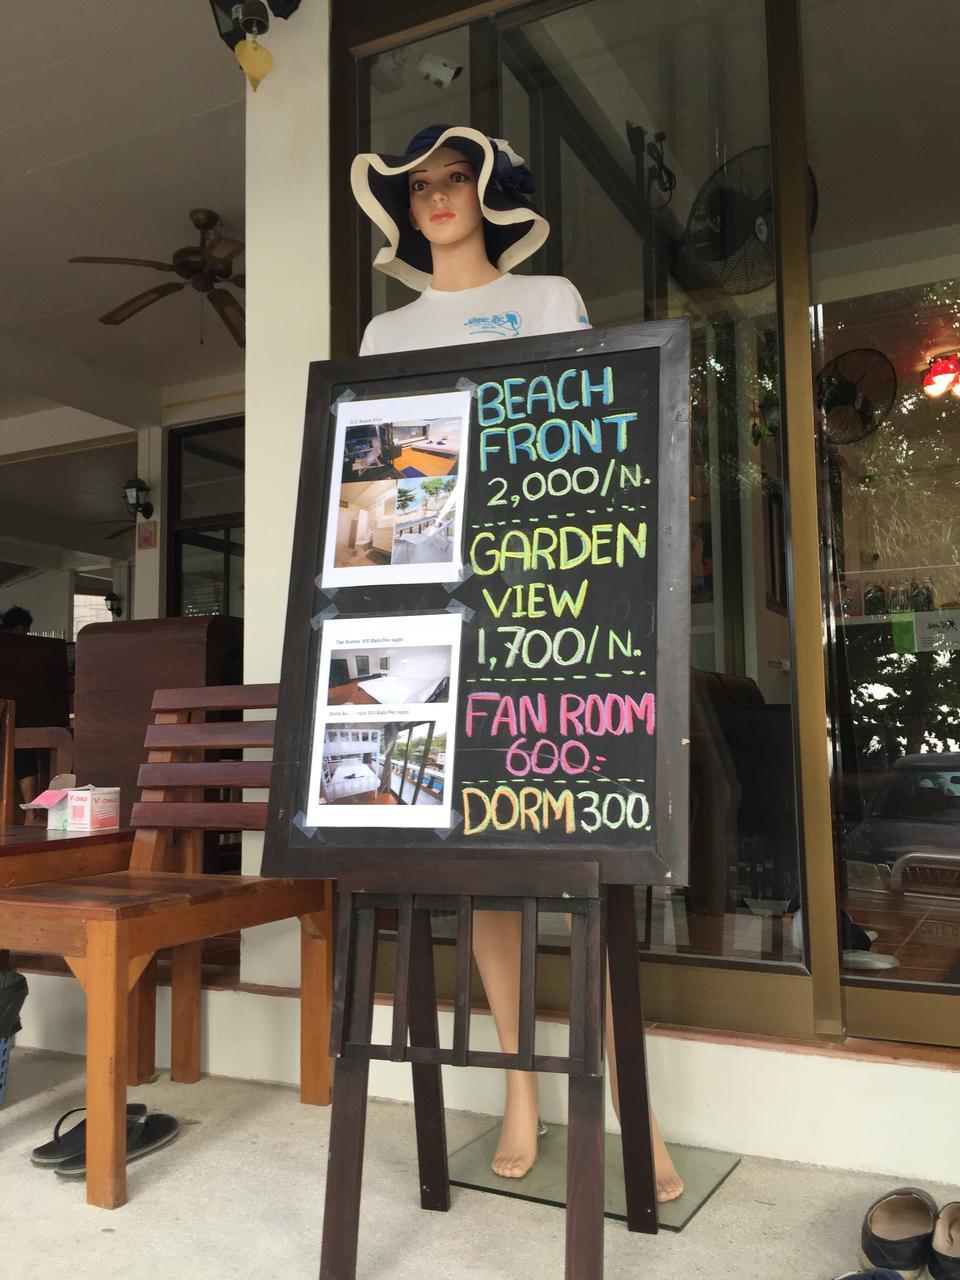 BEACH
FRONT
2,000/N.
GARDEN
VIEW
1,700/N.
FAN ROOM
600.-
DORM 300.
Fan Rooms 600 Baht/Per night
300 Baht/Per night
V-CHALK